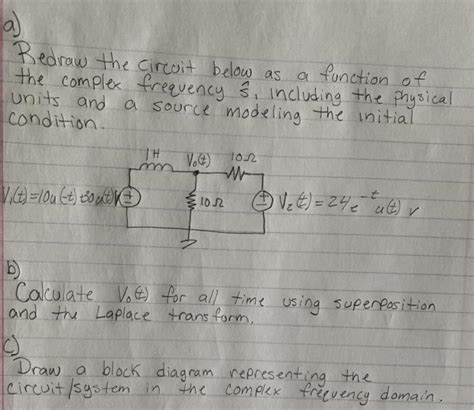 a)
Redraw the circuit below as a function of
the complex frequency ŝ, including the physical
units and a source modeling the initial
condition.
1H V₀(t) 10Ω
V₁(t)=10u(-t)+30u(t)V
10Ω
V₂(t)=24e⁻ᵗu(t) V
b)
Calculate V₀(t) for all time using superposition
and the Laplace transform.
c)
Draw a block diagram representing the
circuit/system in the complex frequency domain.